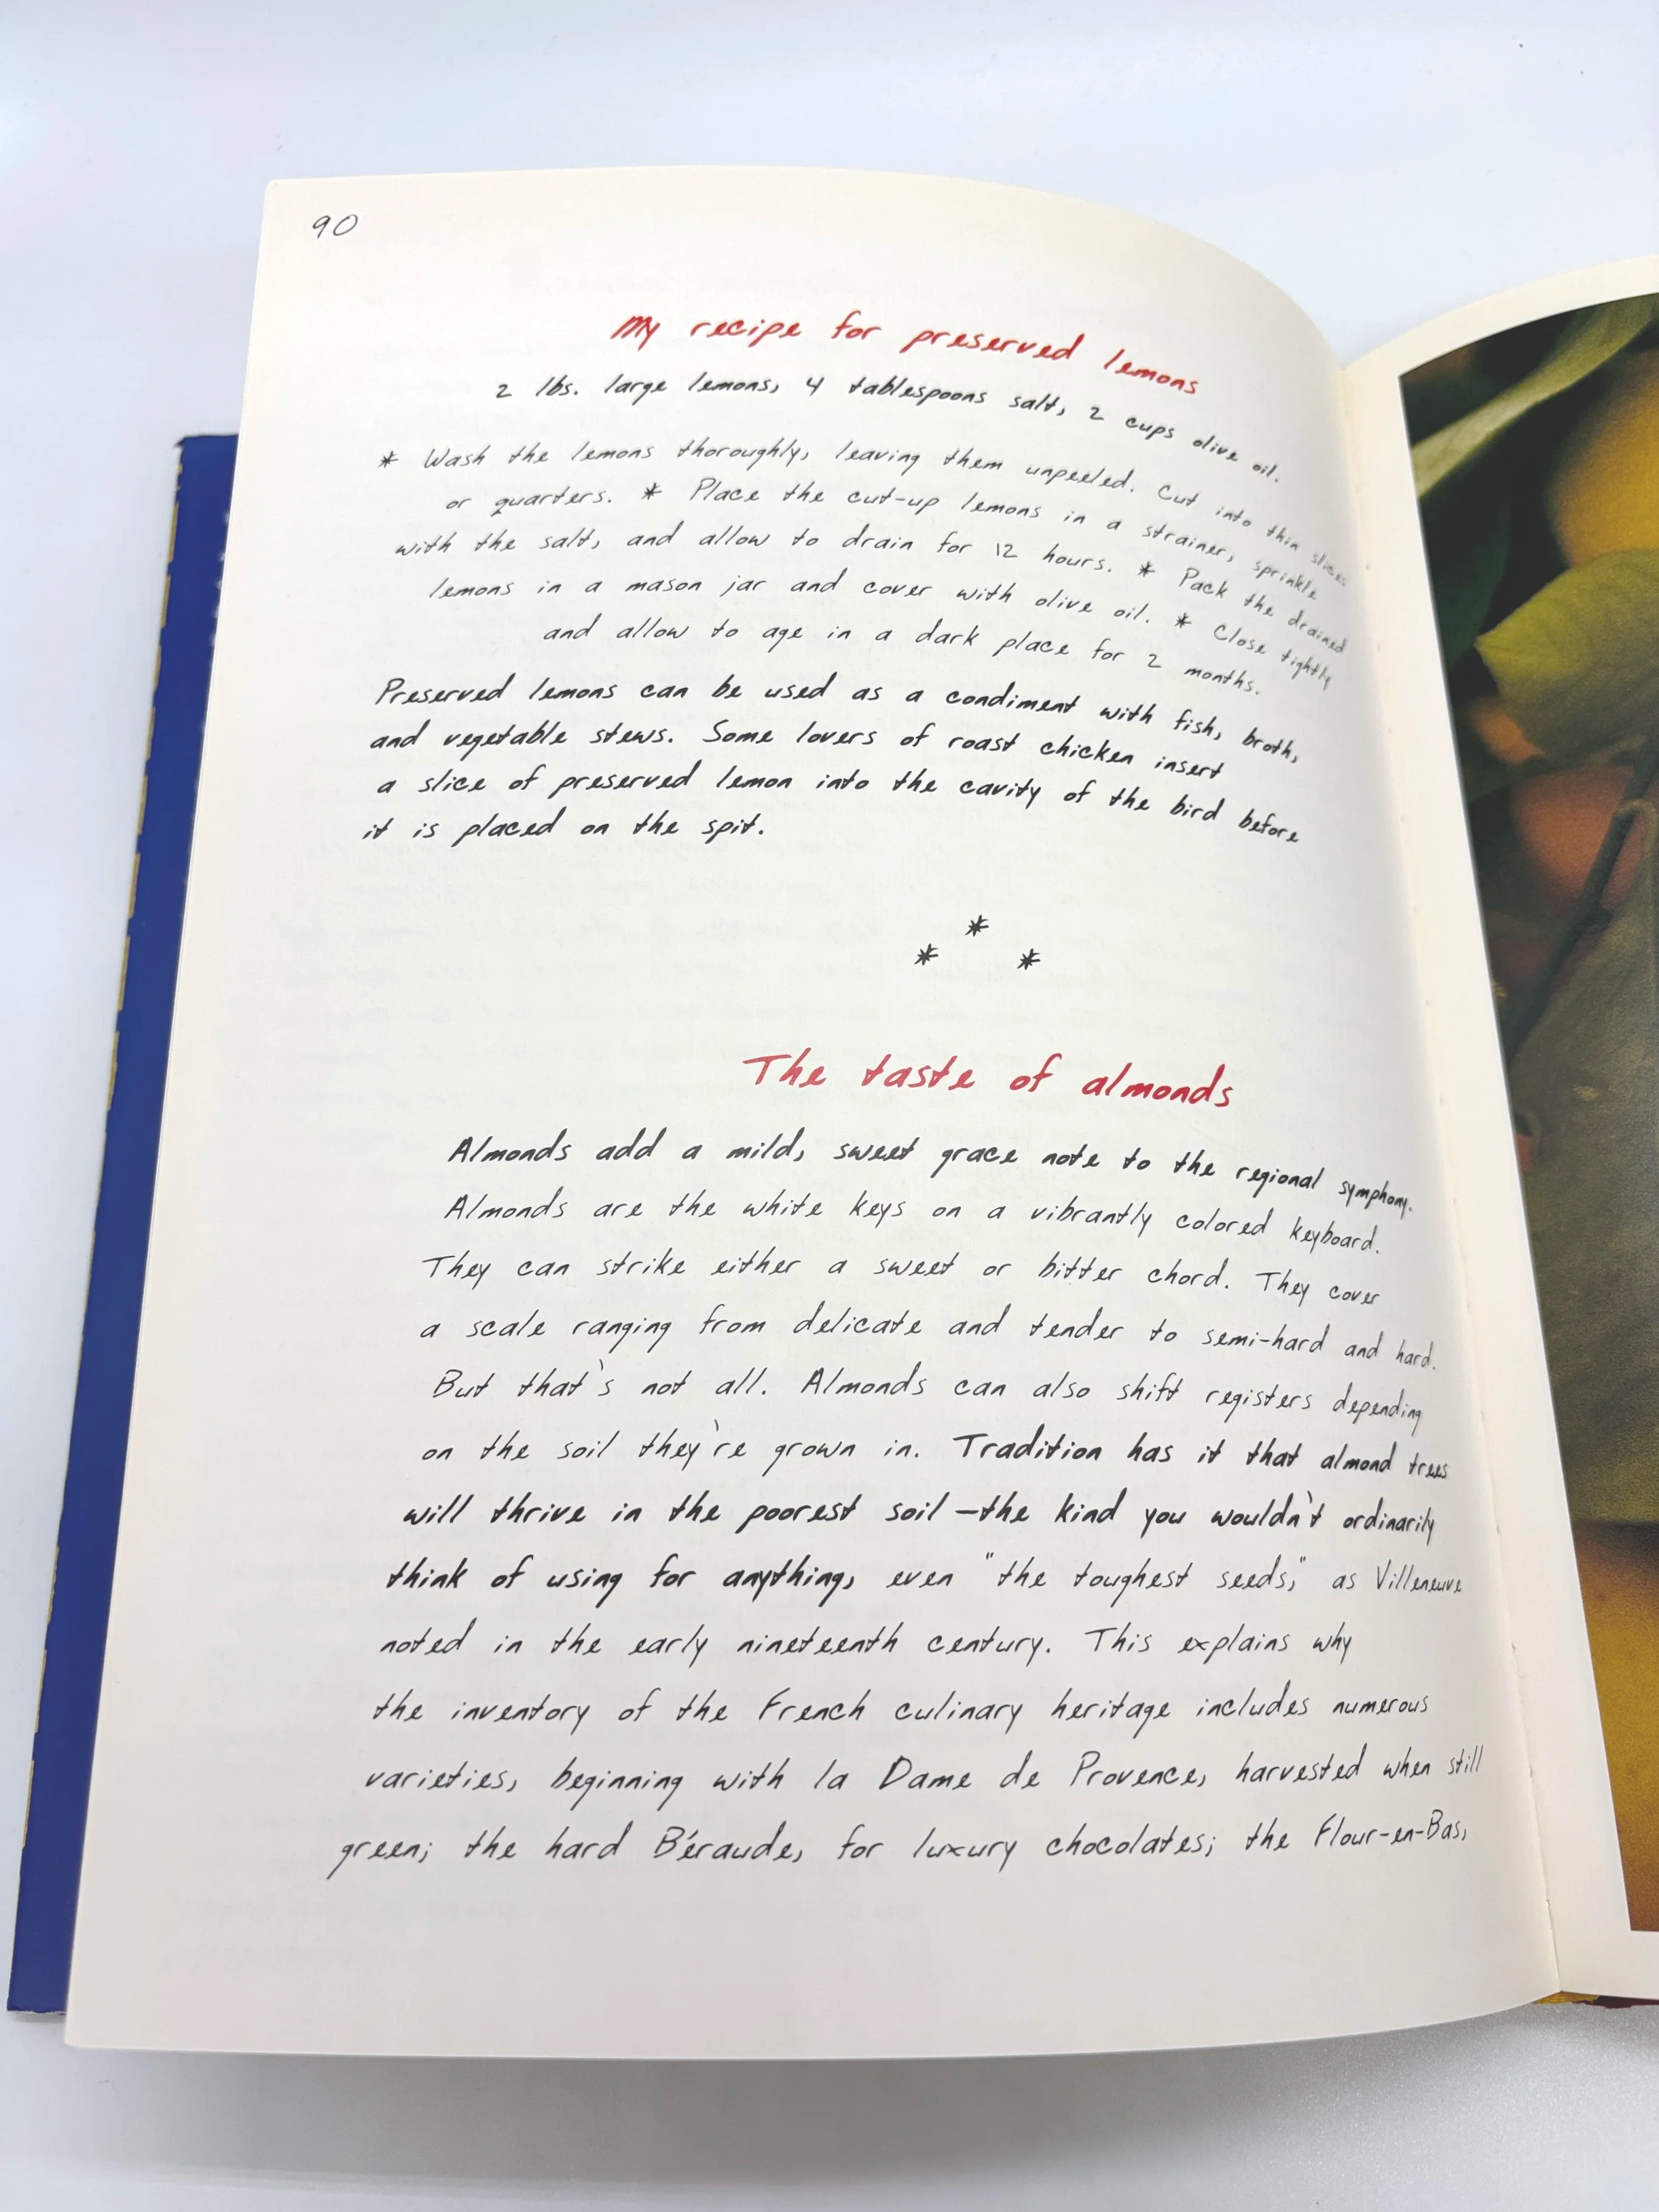 90
My recipe for preserved lemons
2 lbs. large lemons, 4 tablespoons salt, 2 cups olive oil.
* Wash the lemons thoroughly, leaving them unpeeled. Cut into thin slices
or quarters. * Place the cut-up lemons in a strainer, sprinkle
with the salt, and allow to drain for 12 hours. * Pack the drained
lemons in a mason jar and cover with olive oil. * Close tightly
and allow to age in a dark place for 2 months.
Preserved lemons can be used as a condiment with fish, broth,
and vegetable stews. Some lovers of roast chicken insert
a slice of preserved lemon into the cavity of the bird before
it is placed on the spit.
*
* *
The taste of almonds
Almonds add a mild, sweet grace note to the regional symphony.
Almonds are the white keys on a vibrantly colored keyboard.
They can strike either a sweet or bitter chord. They cover
a scale ranging from delicate and tender to semi-hard and hard.
But that's not all. Almonds can also shift registers depending
on the soil they're grown in. Tradition has it that almond trees
will thrive in the poorest soil—the kind you wouldn't ordinarily
think of using for anything, even "the toughest seeds," as Villeneuve
noted in the early nineteenth century. This explains why
the inventory of the French culinary heritage includes numerous
varieties, beginning with la Dame de Provence, harvested when still
green; the hard Béraude, for luxury chocolates; the Flour-en-Bas,